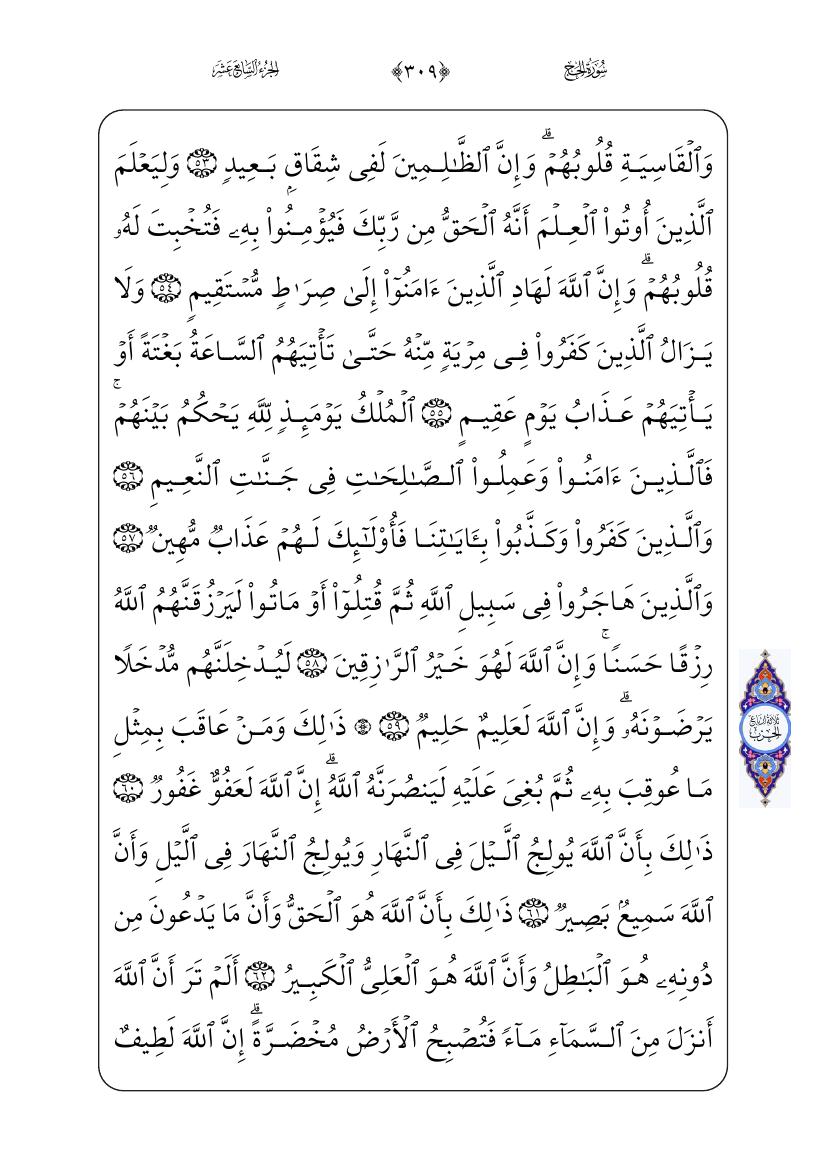 سُورَةُ الحَجِّ ﴿٣٠٩﴾ الجُزْءُ السَّابِعَ عَشَرَ
وَٱلْقَاسِيَةِ قُلُوبُهُمْۗ وَإِنَّ ٱلظَّٰلِمِينَ لَفِى شِقَاقٍۭ بَعِيدٍ ٥٣ وَلِيَعْلَمَ
ٱلَّذِينَ أُوتُوا۟ ٱلْعِلْمَ أَنَّهُ ٱلْحَقُّ مِن رَّبِّكَ فَيُؤْمِنُوا۟ بِهِۦ فَتُخْبِتَ لَهُۥ
قُلُوبُهُمْۗ وَإِنَّ ٱللَّهَ لَهَادِ ٱلَّذِينَ ءَامَنُوٓا۟ إِلَىٰ صِرَٰطٍ مُّسْتَقِيمٍ ٥٤ وَلَا
يَزَالُ ٱلَّذِينَ كَفَرُوا۟ فِى مِرْيَةٍ مِّنْهُ حَتَّىٰ تَأْتِيَهُمُ ٱلسَّاعَةُ بَغْتَةً أَوْ
يَأْتِيَهُمْ عَذَابُ يَوْمٍ عَقِيمٍ ٥٥ ٱلْمُلْكُ يَوْمَئِذٍ لِّلَّهِ يَحْكُمُ بَيْنَهُمْۚ
فَٱلَّذِينَ ءَامَنُوا۟ وَعَمِلُوا۟ ٱلصَّٰلِحَٰتِ فِى جَنَّٰتِ ٱلنَّعِيمِ ٥٦
وَٱلَّذِينَ كَفَرُوا۟ وَكَذَّبُوا۟ بِـَٔايَٰتِنَا فَأُو۟لَٰٓئِكَ لَهُمْ عَذَابٌ مُّهِينٌ ٥٧
وَٱلَّذِينَ هَاجَرُوا۟ فِى سَبِيلِ ٱللَّهِ ثُمَّ قُتِلُوٓا۟ أَوْ مَاتُوا۟ لَيَرْزُقَنَّهُمُ ٱللَّهُ
رِزْقًا حَسَنًاۚ وَإِنَّ ٱللَّهَ لَهُوَ خَيْرُ ٱلرَّٰزِقِينَ ٥٨ لَيُدْخِلَنَّهُم مُّدْخَلًا
يَرْضَوْنَهُۥۗ وَإِنَّ ٱللَّهَ لَعَلِيمٌ حَلِيمٌ ٥٩ ۞ ذَٰلِكَ وَمَنْ عَاقَبَ بِمِثْلِ
مَا عُوقِبَ بِهِۦ ثُمَّ بُغِىَ عَلَيْهِ لَيَنصُرَنَّهُ ٱللَّهُۗ إِنَّ ٱللَّهَ لَعَفُوٌّ غَفُورٌ ٦٠
ذَٰلِكَ بِأَنَّ ٱللَّهَ يُولِجُ ٱلَّيْلَ فِى ٱلنَّهَارِ وَيُولِجُ ٱلنَّهَارَ فِى ٱلَّيْلِ وَأَنَّ
ٱللَّهَ سَمِيعٌۢ بَصِيرٌ ٦١ ذَٰلِكَ بِأَنَّ ٱللَّهَ هُوَ ٱلْحَقُّ وَأَنَّ مَا يَدْعُونَ مِن
دُونِهِۦ هُوَ ٱلْبَٰطِلُ وَأَنَّ ٱللَّهَ هُوَ ٱلْعَلِىُّ ٱلْكَبِيرُ ٦٢ أَلَمْ تَرَ أَنَّ ٱللَّهَ
أَنزَلَ مِنَ ٱلسَّمَآءِ مَآءً فَتُصْبِحُ ٱلْأَرْضُ مُخْضَرَّةًۗ إِنَّ ٱللَّهَ لَطِيفٌ
ثلاثة أرباع
الحزب